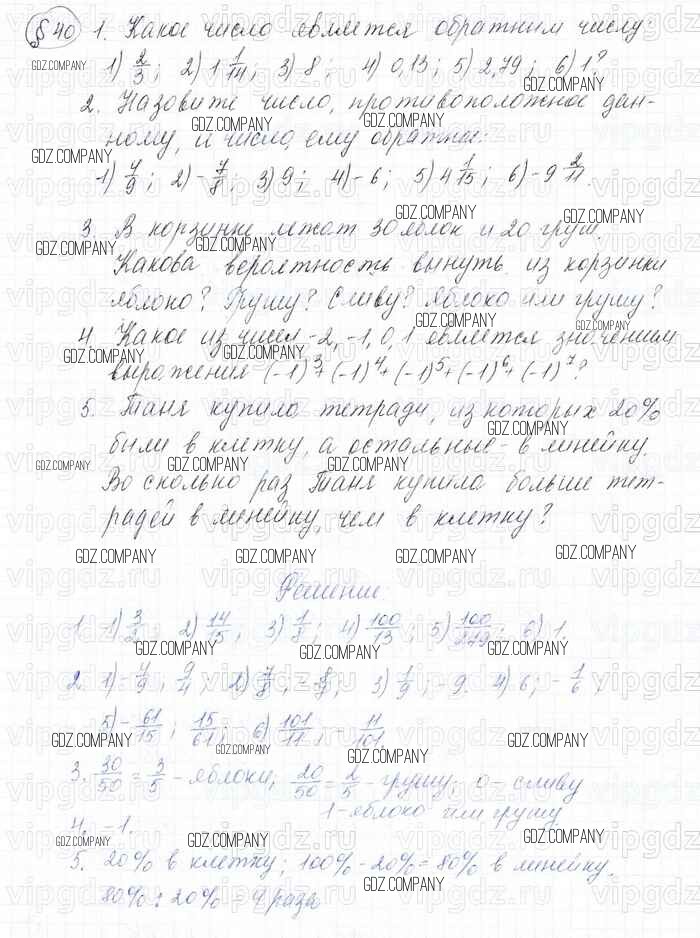 §40 1. Какое число является обратным числу:
1) 2/3; 2) 1 1/14; 3) 8; 4) 0,13; 5) 2,79; 6) 1?
2. Назовите число, противоположное дан-
ному, и число, ему обратны:
1) 4/9; 2) -7/8; 3) 9; 4) -6; 5) 4 1/15; 6) -9 2/11.
3. В корзинке лежат 30 яблок и 20 груш.
Какова вероятность вынуть из корзинки
яблоко? Грушу? Сливу? Яблоко или грушу?
4. Какое из чисел -2, -1, 0, 1 является значением
выражения (-1)³+(-1)⁴+(-1)⁵+(-1)⁶+(-1)⁷?
5. Таня купила тетради, из которых 20%
были в клетку, а остальные - в линейку.
Во сколько раз Таня купила больше тет-
радей в линейку, чем в клетку?
Решение
1. 1) 3/2; 2) 14/15; 3) 1/8; 4) 100/13; 5) 100/279; 6) 1.
2. 1) -4/9; 9/4; 2) 7/8; 3) 1/9; -9. 4) 6; -1/6;
5) -61/15; 15/61; 6) 101/11; -11/101.
3. 30/50 = 3/5 - яблоки; 20/50 = 2/5 - грушу; 0 - сливу
1 - яблоко или грушу
4. -1.
5. 20% в клетку; 100% - 20% = 80% в линейку.
80% : 20% = 4 раза
GDZ.COMPANY
vipgdz.ru